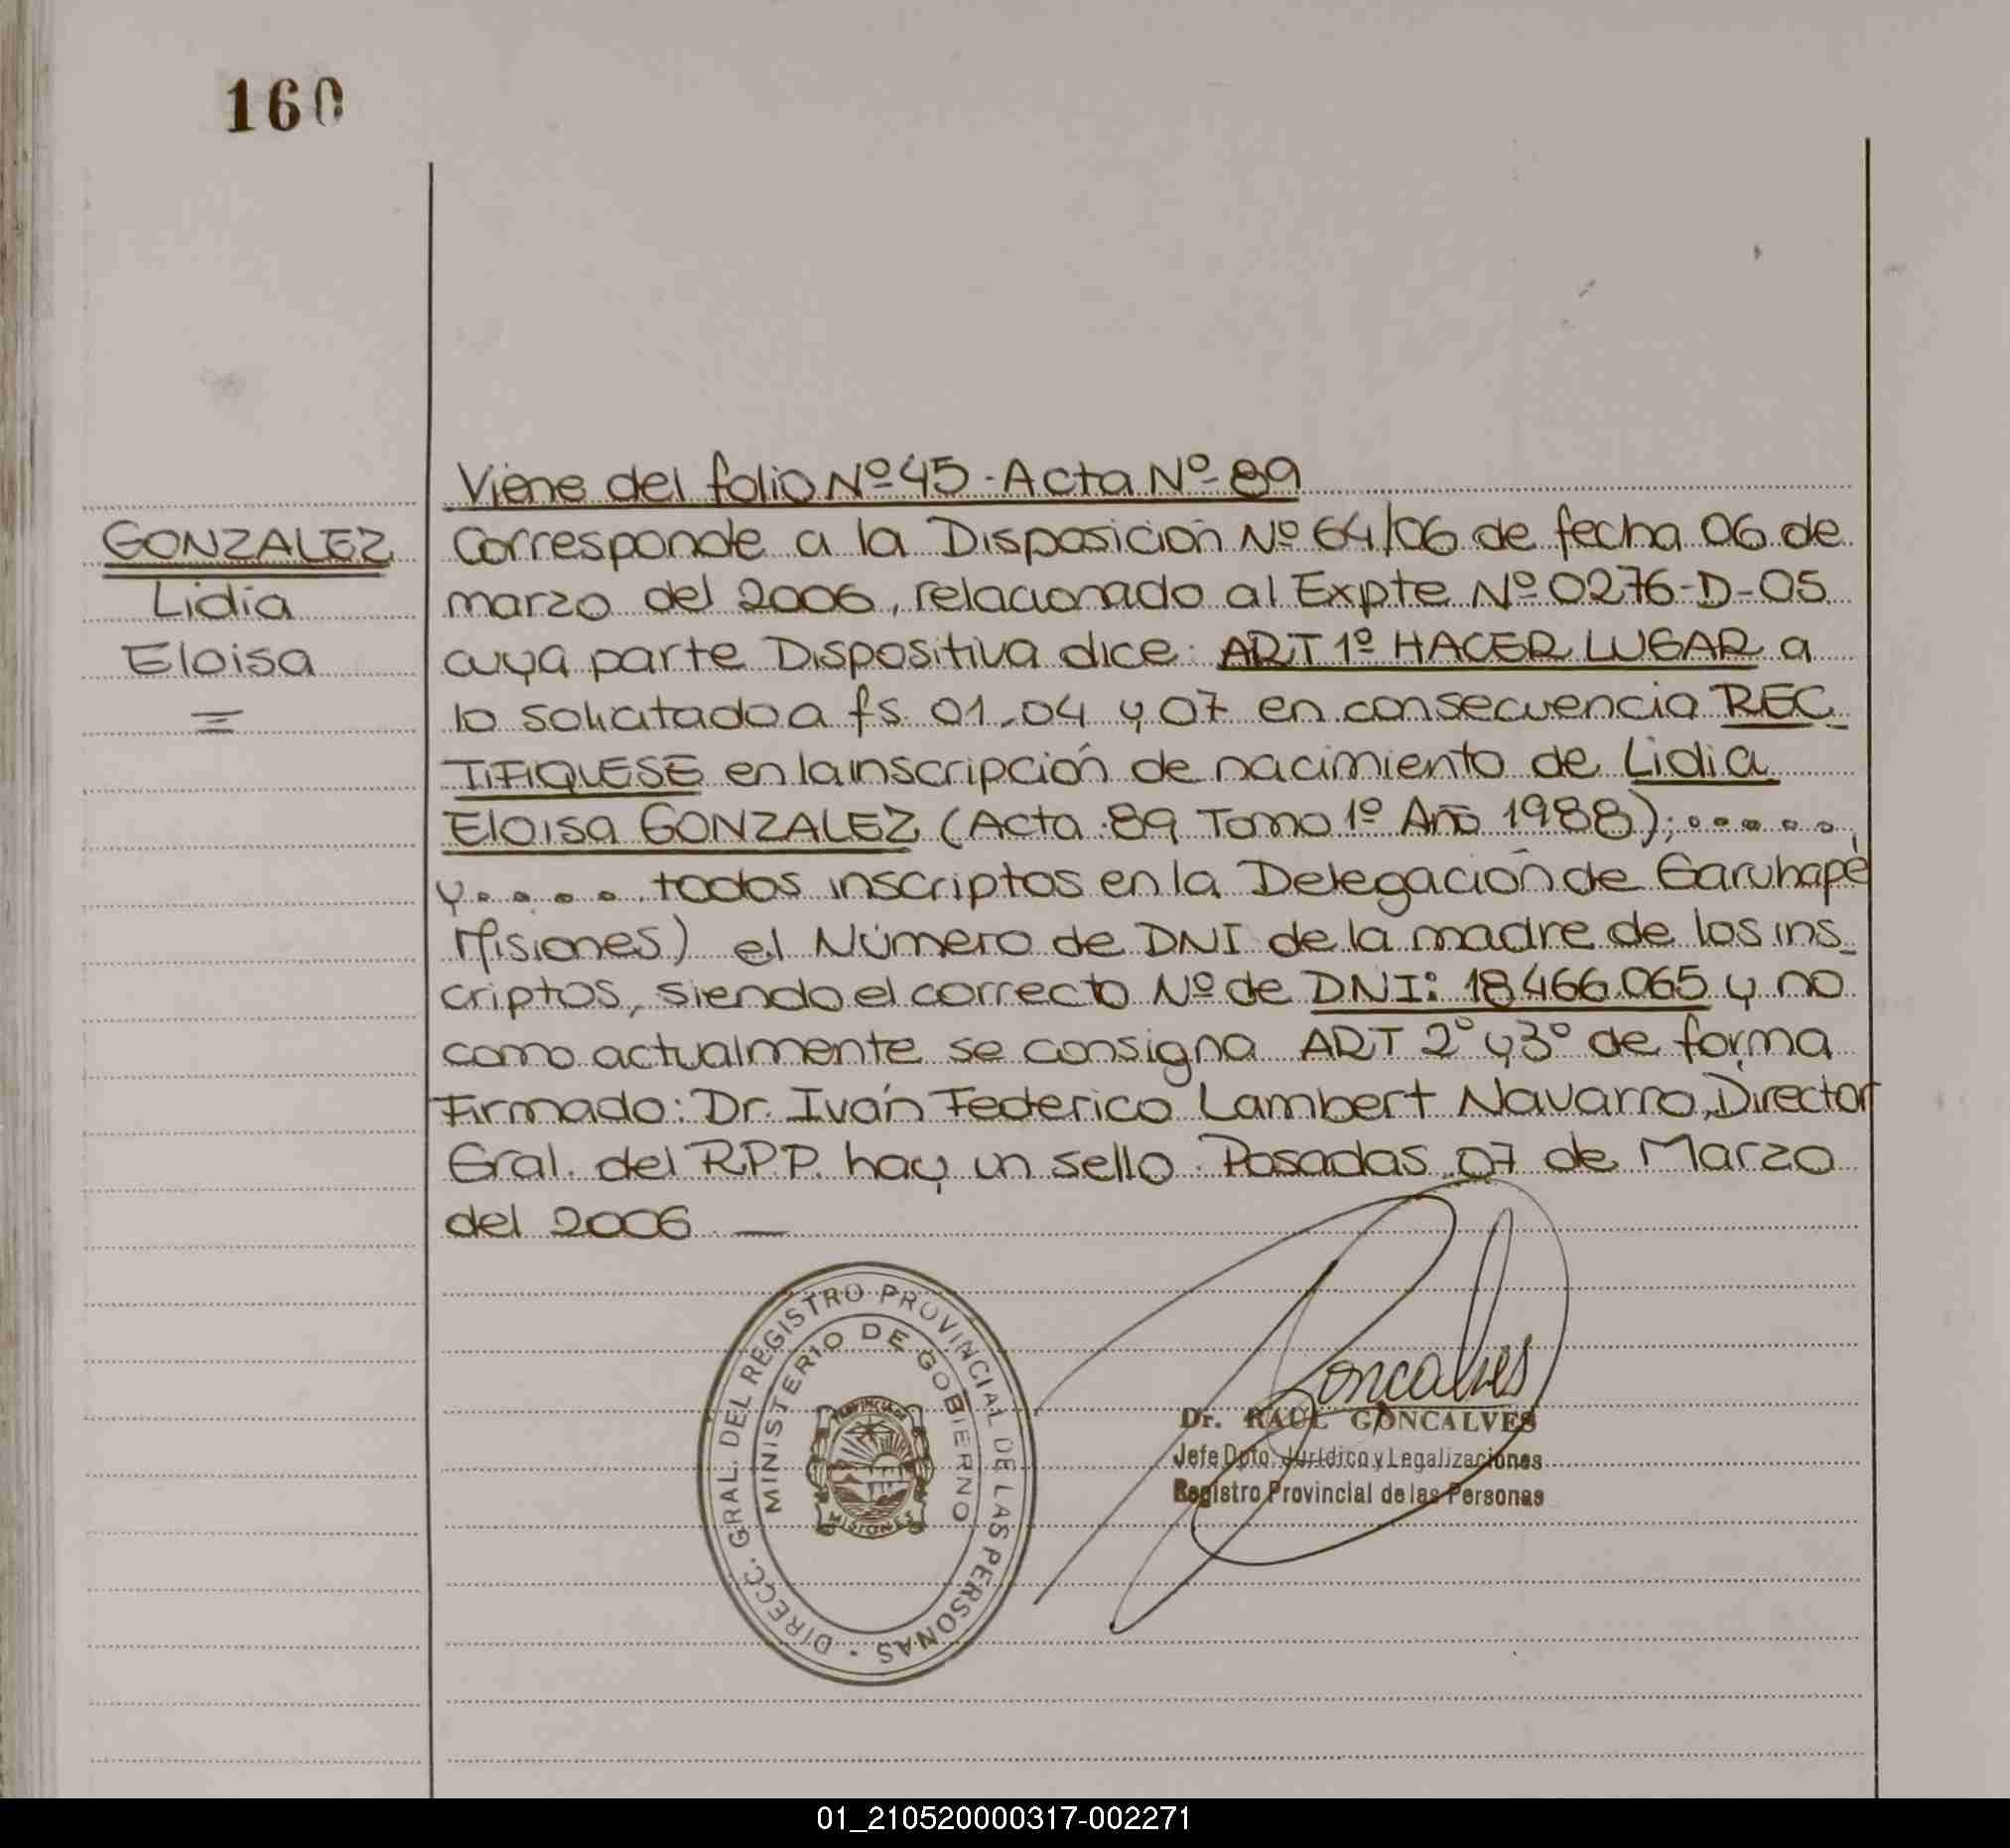 160
GONZALEZ
Lidia
Eloisa
Viene del folio Nº 45 - Acta Nº 89
Corresponde a la Disposición Nº 64/06 de fecha 06 de
marzo del 2006, relacionado al Expte Nº 0276-D-05
cuya parte Dispositiva dice: ART 1º HACER LUGAR a
lo solicitado a fs 01, 04 y 07 en consecuencia REC
TIFIQUESE en la inscripción de nacimiento de Lidia
Eloisa GONZALEZ (Acta 89 Tomo 1º Año 1988); . . . . .
y . . . . . todos inscriptos en la Delegación de Garuhapé
Misiones) el Número de DNI de la madre de los ins_
criptos, siendo el correcto Nº de DNI: 18.466.065 y no
como actualmente se consigna ART 2° y 3° de forma
Firmado: Dr. Iván Federico Lambert Navarro, Director
Gral. del R.P.P. hay un sello. Posadas 07 de Marzo
del 2006. —
DIRECC. GRAL. DEL REGISTRO PROVINCIAL DE LAS PERSONAS
MINISTERIO DE GOBIERNO
PROVINCIA DE
MISIONES
Goncalves
Dr. RAUL GONCALVES
Jefe Dpto. Jurídico y Legalizaciones
Registro Provincial de las Personas
01_210520000317-002271